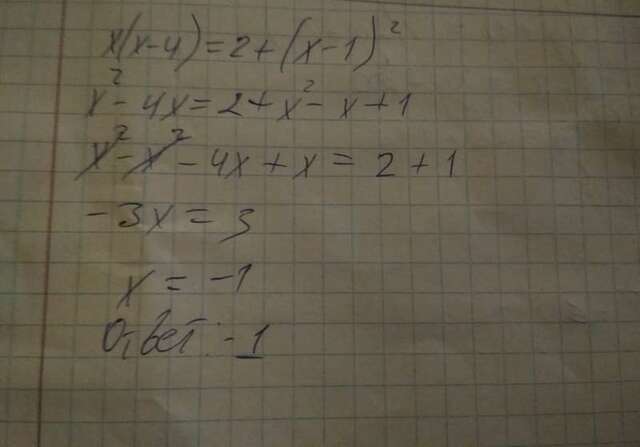 x(x-4)=2+(x-1)²
x²-4x=2+x²-x+1
x²-x²-4x+x=2+1
-3x=3
x=-1
Ответ:-1